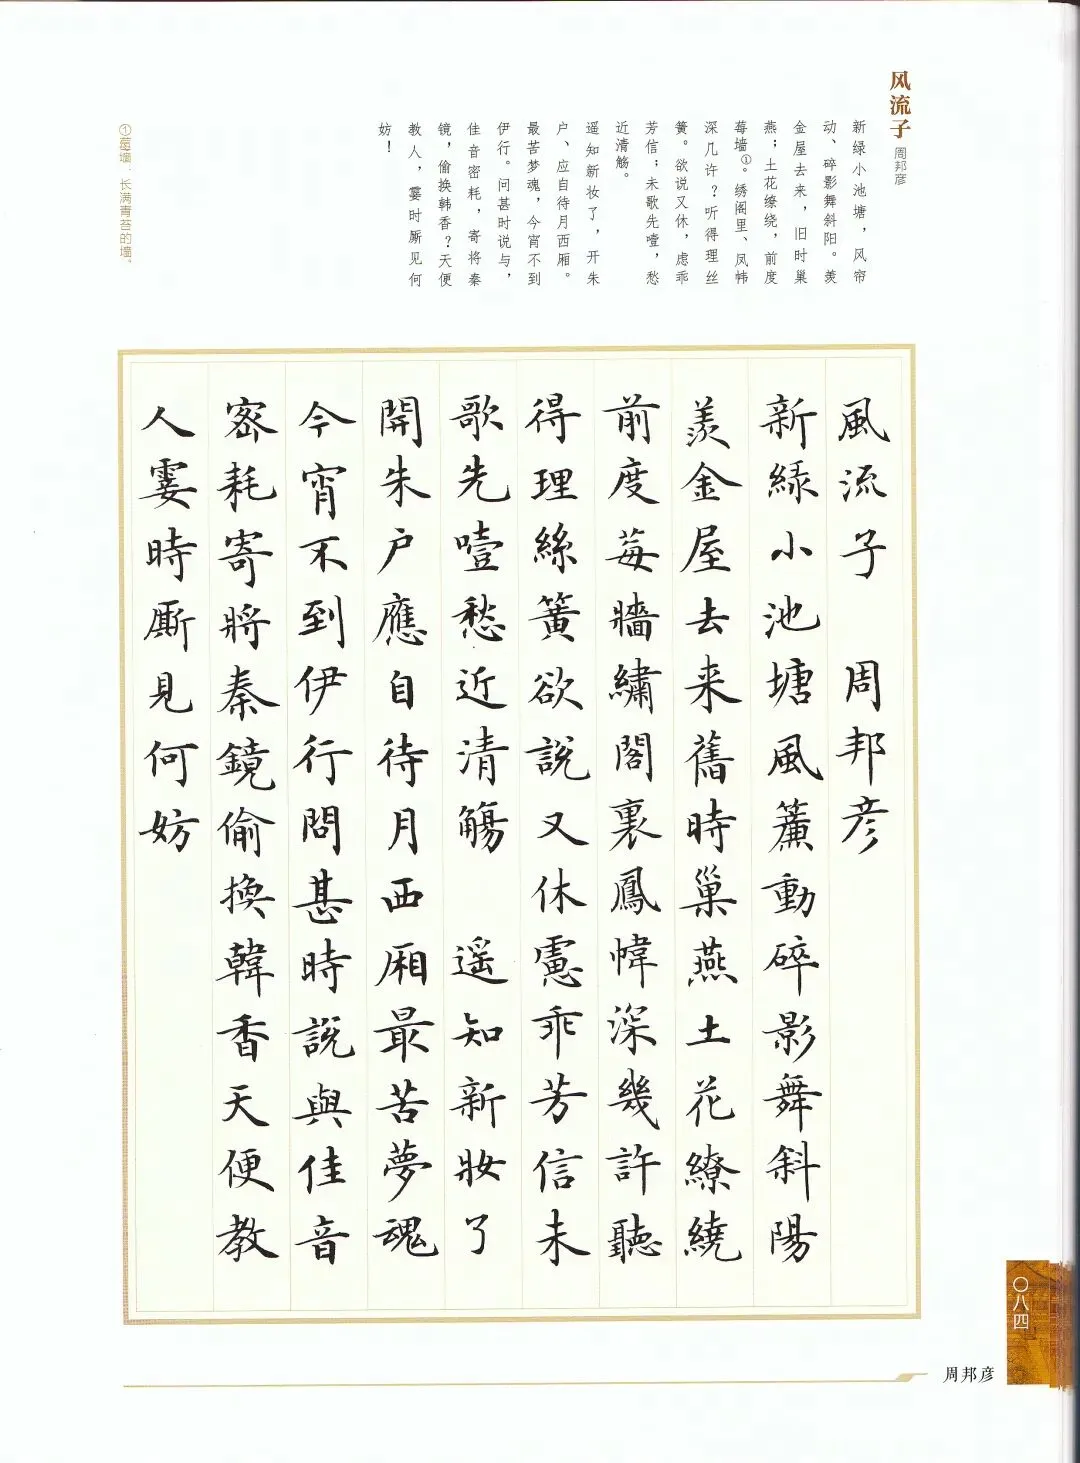 风流子
周邦彦
新绿小池塘，风帘
动、碎影舞斜阳。羡
金屋去来，旧时巢
燕；土花缭绕，前度
莓墙①。绣阁里、凤帏
深几许？听得理丝
簧。欲说又休，虑乖
芳信；未歌先噎，愁
近清觞。
遥知新妆了，开朱
户、应自待月西厢。
最苦梦魂，今宵不到
伊行。问甚时说与，
佳音密耗，寄将秦
镜，偷换韩香？天便
教人，霎时厮见何
妨！
①莓墙：长满青苔的墙。
風流子 周邦彦
新緑小池塘風簾動碎影舞斜陽
羨金屋去来舊時巢燕土花繚繞
前度莓牆繡閣裏鳳幃深幾許聽
得理絲簧欲説又休慮乖芳信未
歌先噎愁近清觴 遥知新妝了
開朱户應自待月西厢最苦夢魂
今宵不到伊行問甚時説與佳音
密耗寄將秦鏡偷換韓香天便教
人霎時厮見何妨
〇八四
周邦彦